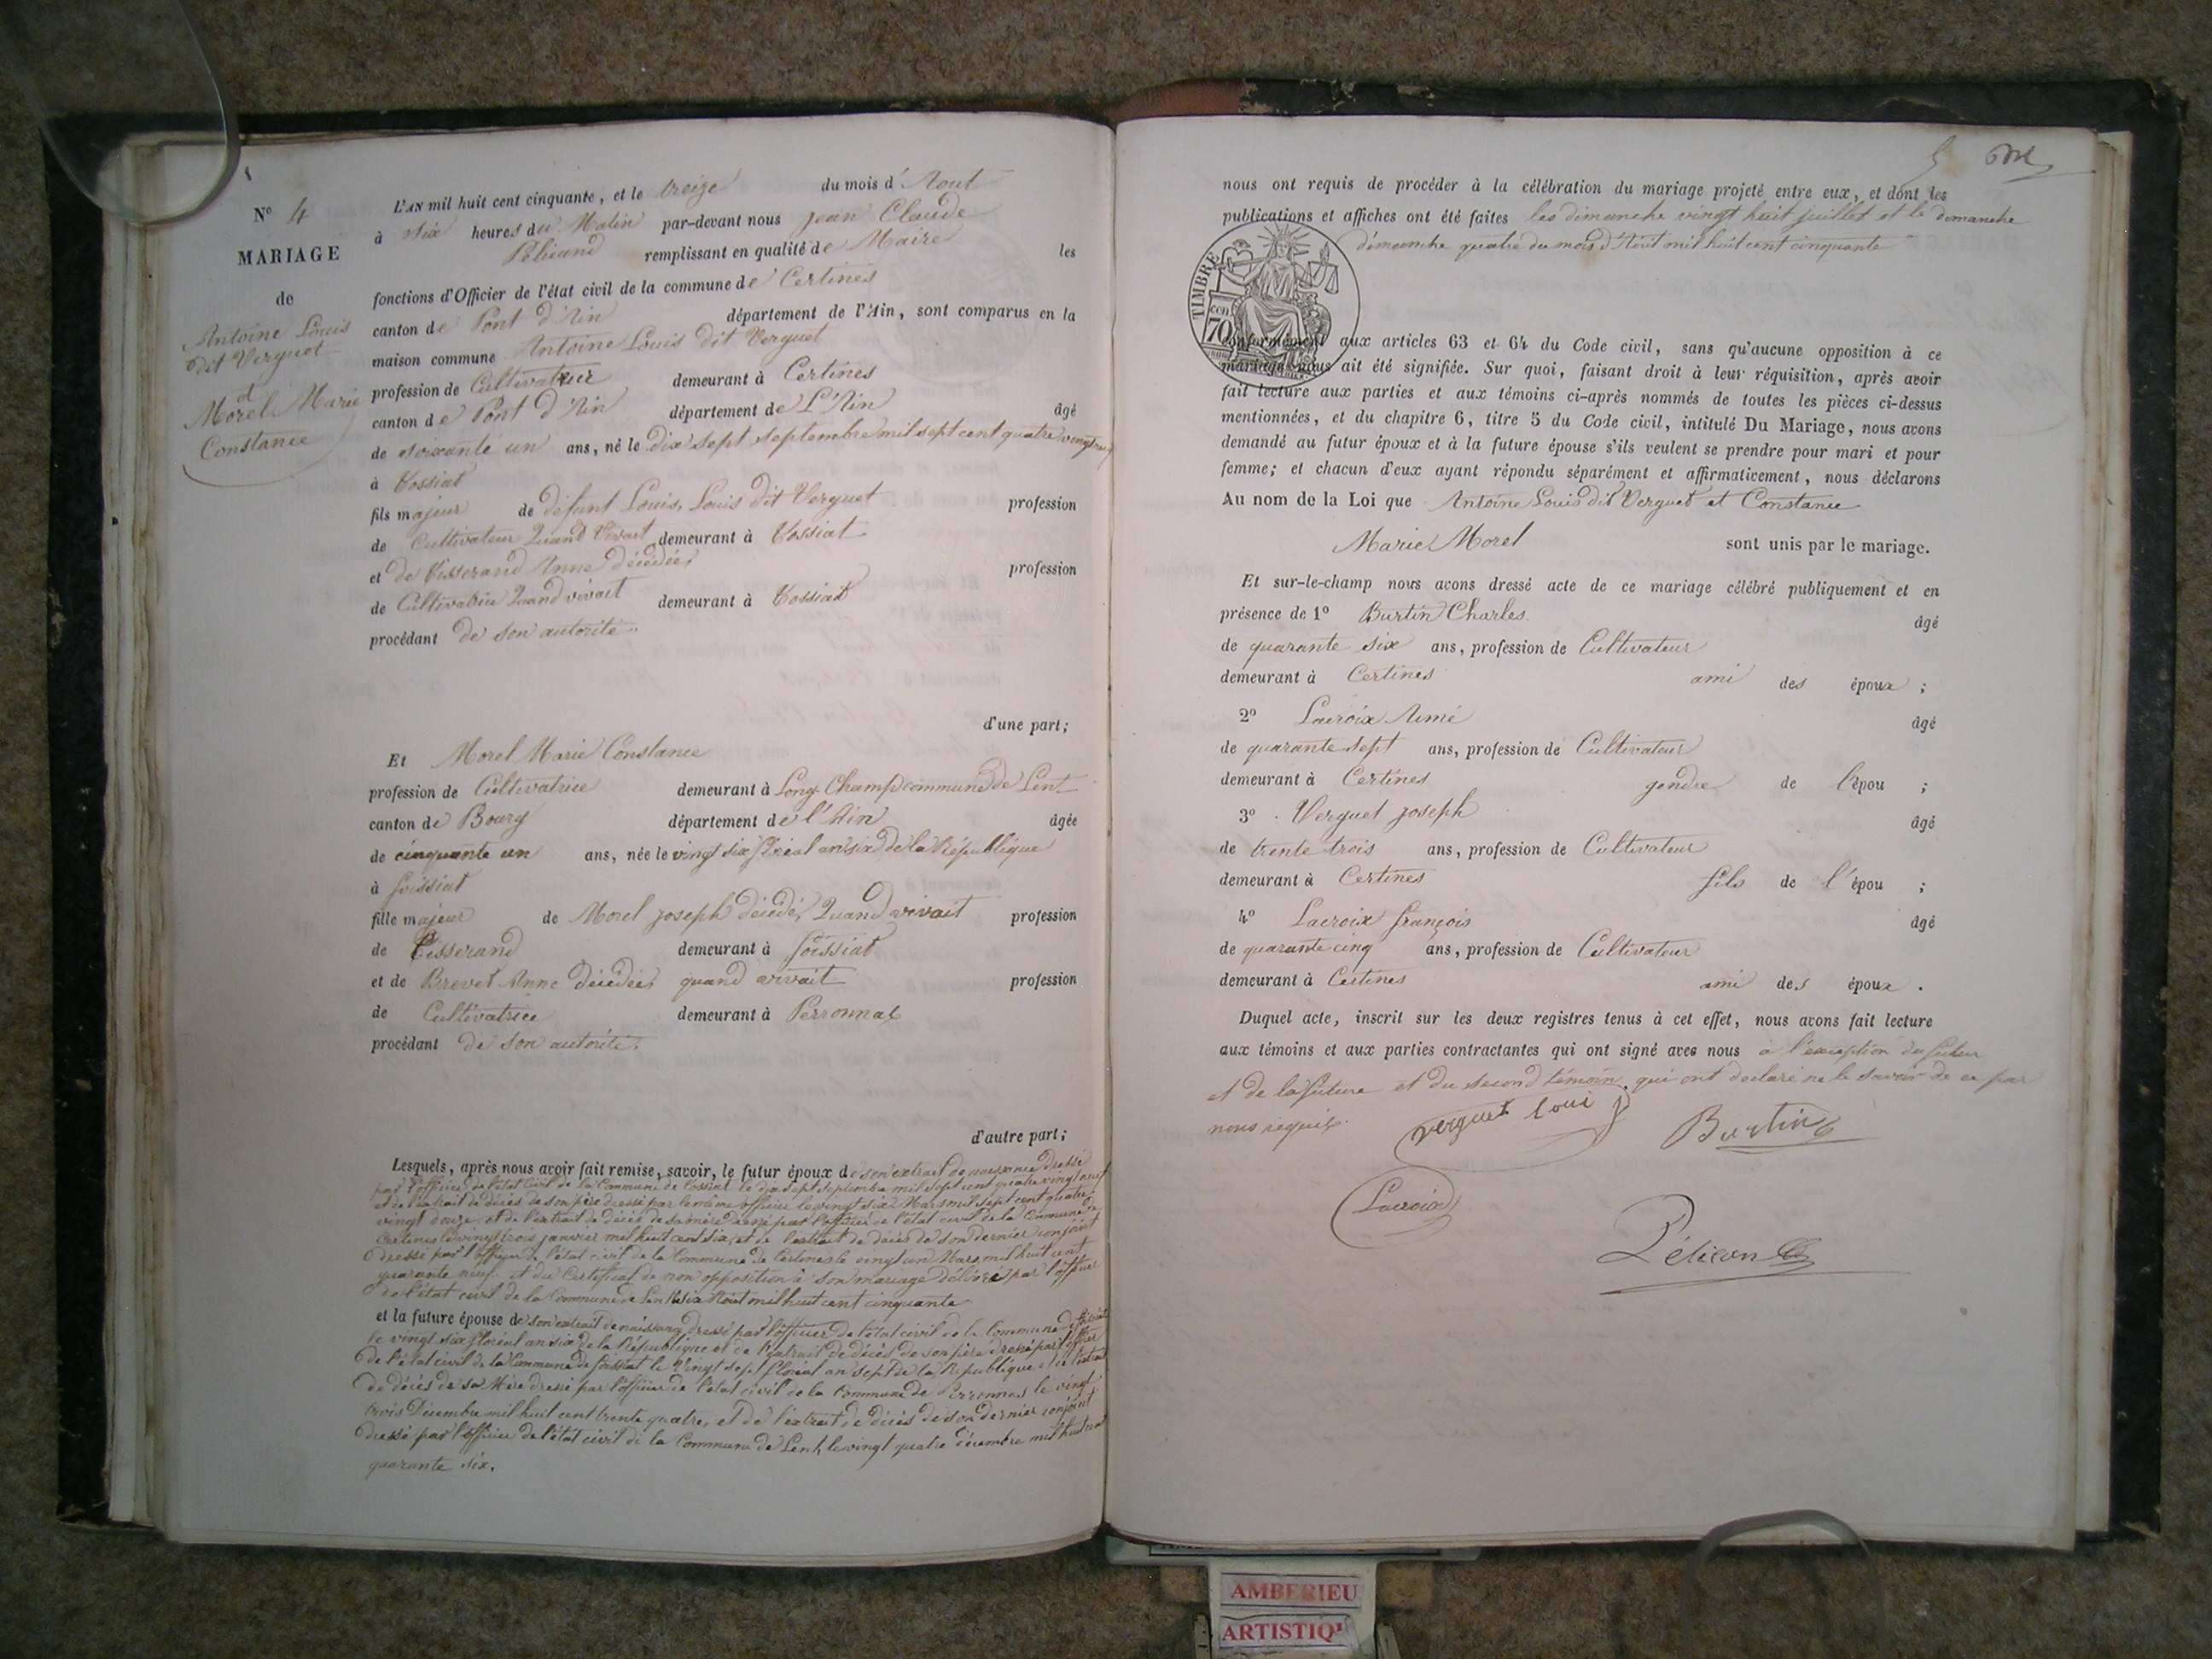 N° 4
MARIAGE
de
Antoine Louis
dit Verguet
et
Morel Marie
Constance
L'AN mil huit cent cinquante, et le treize du mois d'Aout
à six heures du Matin par-devant nous jean Claude
remplissant en qualité de Maire les
fonctions d'Officier de l'état civil de la commune de Certines
canton de Pont d'Ain département de l'Ain, sont comparus en la
maison commune Antoine Louis dit Verguet
profession de Cultivateur demeurant à Certines
canton de Pont d'Ain département de L'Ain âgé
de soixante un ans, né le dix sept septembre mil sept cent quatre vingt neuf
à Tossiat
fils majeur de défunt Louis, Louis dit Verguet profession
de Cultivateur Quand Vivait demeurant à Tossiat
et de Tisserand Anne décédée, profession
de Cultivatrice Quand vivait demeurant à Tossiat
procédant de son autorité.
d'une part;
Et Morel Marie Constance
profession de Cultivatrice demeurant à Long Champ commune de Lent
canton de Bourg département de l'Ain âgée
de cinquante un ans, née le vingt six floréal an six de la République
à foissiat
fille majeur de Morel joseph décédé, Quand vivait profession
de Tisserand demeurant à foissiat
et de Brevet Anne décédée, quand vivait profession
de Cultivatrice demeurant à Perronnas
procédant de son autorité.
d'autre part;
Lesquels, après nous avoir fait remise, savoir, le futur époux de son extrait de naissance dressé
par l'officier de l'état Civil de la Commune de Tossiat le dix sept septembre mil sept cent quatre vingt neuf
et de l'extrait de décès de son père dressé par le même officier le vingt six Mars mil sept cent quatre
vingt douze et de l'extrait de décès de sa mère dressé par l'officier de l'état civil de la Commune de
Certines le vingt trois janvier mil huit cent six, et de l'extrait de décès de son dernier conjoint
dressé par l'officier de l'état civil de la Commune de Certines le vingt un Mars mil huit cent
quarante neuf et du Certificat de non opposition à son mariage délivré par l'officier
de l'état civil de la Commune de Lent le six Aout mil huit cent cinquante
et la future épouse de son extrait de naissance dressé par l'officier de l'état civil de la Commune de foissiat
le vingt six floréal an six de la République et de l'extrait de décès de son père dressé par l'officier
de l'état civil de la Commune de foissiat le Vingt sept floréal an sept de la République et de l'extrait
de décès de sa Mère dressé par l'officier de l'état civil de la Commune de Perronnas le vingt
trois Décembre mil huit cent trente quatre, et de l'extrait de décès de son dernier conjoint
dressé par l'officier de l'état civil de la Commune de Lent, le vingt quatre décembre mil huit cent
quarante six.
5
nous ont requis de procéder à la célébration du mariage projeté entre eux, et dont les
publications et affiches ont été faites les dimanche vingt huit juillet et le dimanche
dimanche quatre du mois d'Aout mil huit cent cinquante
TIMBRE
70
conformément aux articles 63 et 64 du Code civil, sans qu'aucune opposition à ce
mariage nous ait été signifiée. Sur quoi, faisant droit à leur réquisition, après avoir
fait lecture aux parties et aux témoins ci-après nommés de toutes les pièces ci-dessus
mentionnées, et du chapitre 6, titre 5 du Code civil, intitulé Du Mariage, nous avons
demandé au futur époux et à la future épouse s'ils veulent se prendre pour mari et pour
femme; et chacun d'eux ayant répondu séparément et affirmativement, nous déclarons
Au nom de la Loi que Antoine Louis dit Verguet et Constance
Marie Morel sont unis par le mariage.
Et sur-le-champ nous avons dressé acte de ce mariage célébré publiquement et en
présence de 1° Burtin Charles. âgé
de quarante six ans, profession de Cultivateur
demeurant à Certines ami des époux ;
2° Lacroix Aimé âgé
de quarante sept ans, profession de Cultivateur
demeurant à Certines gendre de l'épou ;
3° Verguet joseph âgé
de trente trois ans, profession de Cultivateur
demeurant à Certines fils de l'épou ;
4° Lacroix françois âgé
de quarante cinq ans, profession de Cultivateur
demeurant à Certines ami des époux .
Duquel acte, inscrit sur les deux registres tenus à cet effet, nous avons fait lecture
aux témoins et aux parties contractantes qui ont signé avec nous à l'exception du futur
et de la future et du second témoin, qui ont déclaré ne le savoir de ce par
nous requis.
verguet loui j
Burtin
Lacroix
Pélicand
AMBERIEU
ARTISTIQ